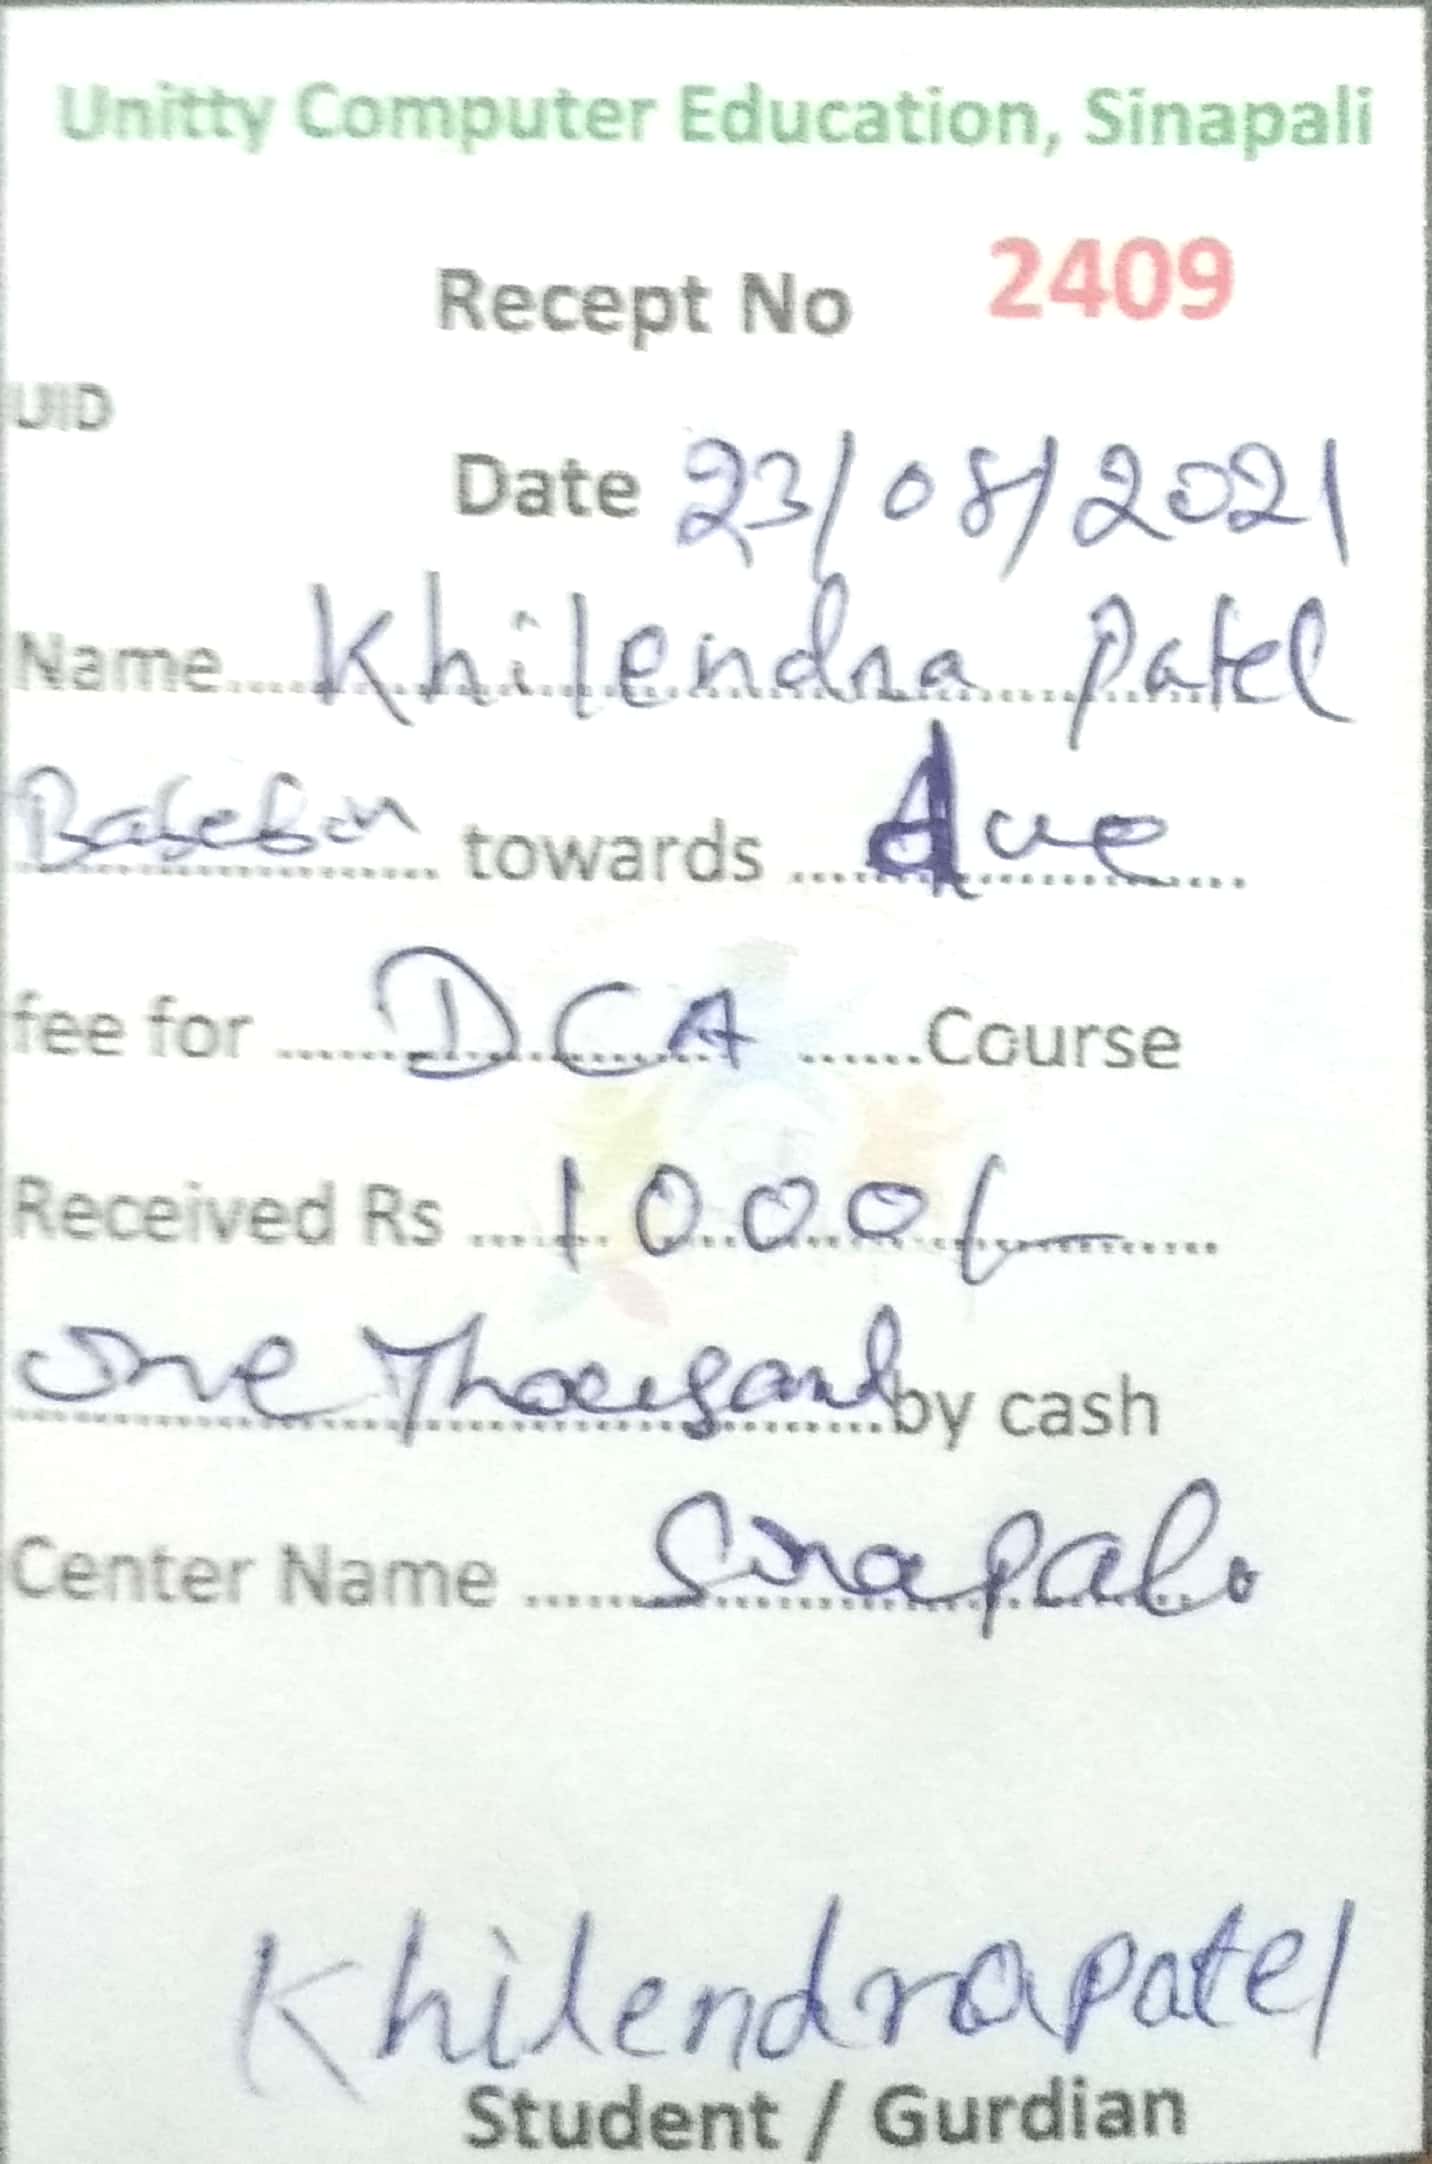 Unitty Computer Education, Sinapali
Recept No 2409
UID
Date 23/08/2021
Name....Khilendra Patel
towards ....due....
fee for ....DCA....Course
Received Rs ....1000/-....
One Thousand by cash
Center Name ....Sinapali
Khilendra patel
Student / Gurdian